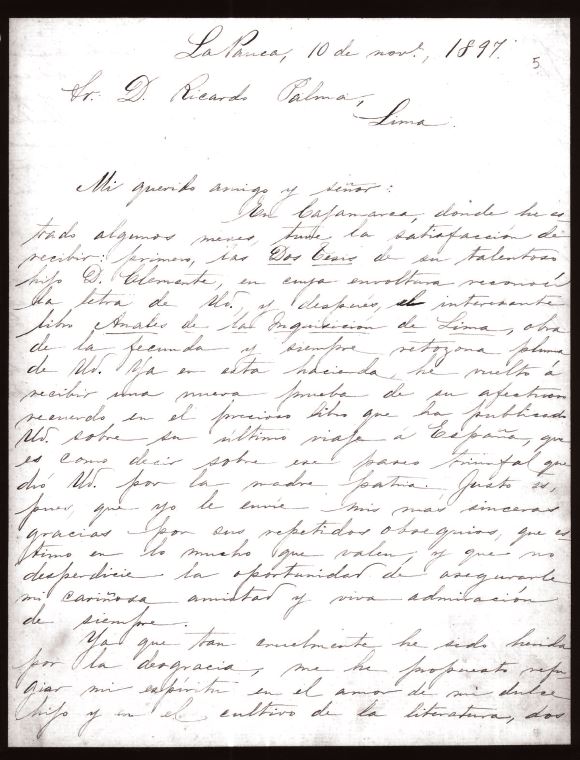 La Pauca, 10 de nov.e, 1897.
5
Sr. D. Ricardo Palma,
Lima.
Mi querido amigo y señor:
En Cajamarca, donde he es
tado algunos meses, tuve la satisfacción de
recibir: primero, las Dos Tesis de su talentoso
hijo D. Clemente, en cuya envoltura reconocí
la letra de Ud., y despues, el interesante
libro Anales de la Inquisicion de Lima, obra
de la fecunda y siempre retozona pluma
de Ud. Ya en esta hacienda, he vuelto á
recibir una nueva prueba de su afectuoso
recuerdo en el precioso libro que ha publicado
Ud. sobre su último viaje á España, que
es como decir sobre ese paseo triunfal que
dió Ud. por la madre patria. Justo es,
pues, que yo le envíe mis mas sinceras
gracias por sus repetidos obsequios, que es
timo en lo mucho que valen, y que no
desperdicie la oportunidad de asegurarle
mi cariñosa amistad y viva admiración
de siempre.
Ya que tan cruelmente he sido herida
por la desgracia, me he propuesto refu
giar mi espíritu en el amor de mi dulce
hijo y en el cultivo de la literatura, dos